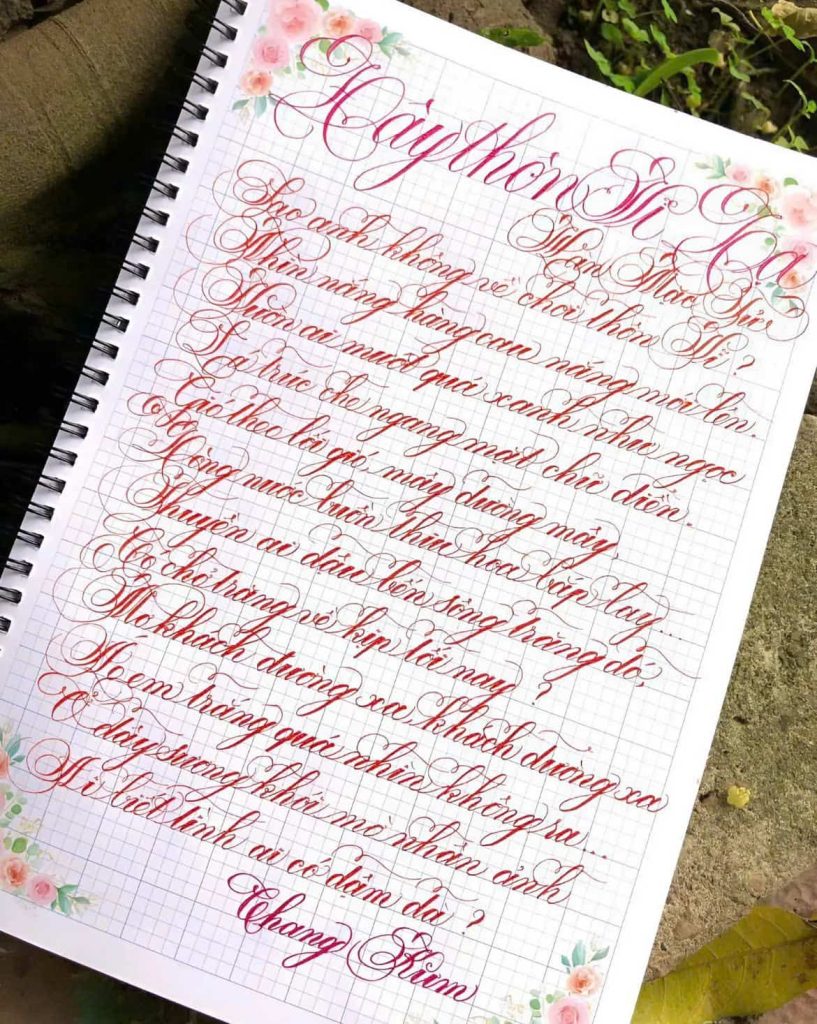 Đây thôn Vĩ Dạ
Hàn Mặc Tử
Sao anh không về chơi thôn Vĩ?
Nhìn nắng hàng cau nắng mới lên.
Vườn ai mướt quá xanh như ngọc
Lá trúc che ngang mặt chữ điền.
Gió theo lối gió, mây đường mây,
Dòng nước buồn thiu hoa bắp lay...
Thuyền ai đậu bến sông trăng đó,
Có chở trăng về kịp tối nay?
Mơ khách đường xa, khách đường xa
Áo em trắng quá nhìn không ra...
Ở đây sương khói mờ nhân ảnh
Ai biết tình ai có đậm đà?
Thang Kim